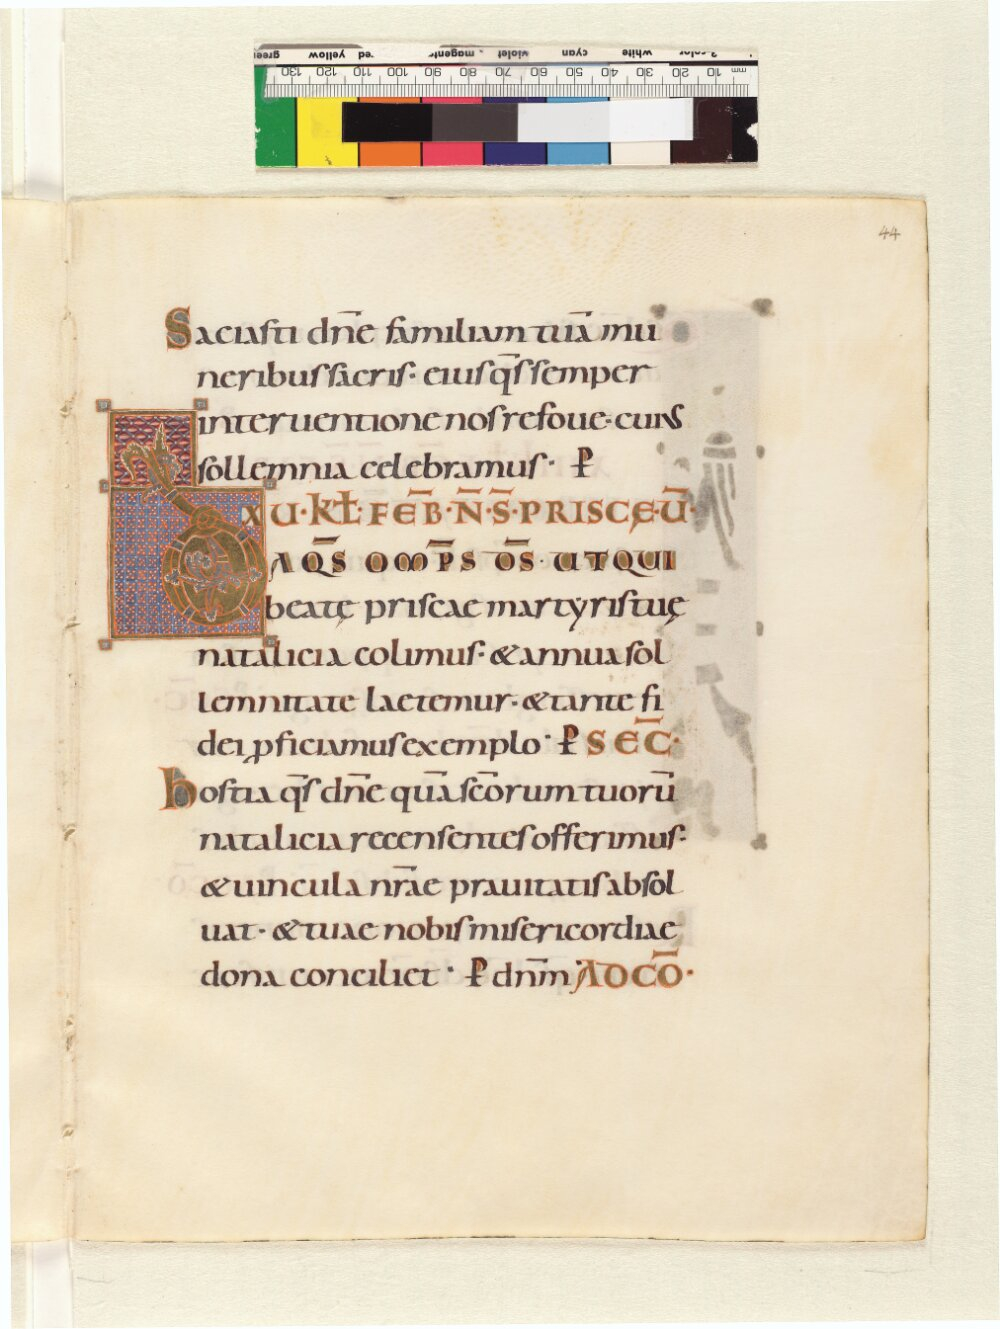 44
Saciasti dn̄e familiam tuā mu
neribus sacris· eius q̄s semper
interuentione nos refoue· cuius
sollemnia celebramus· P
XV·KL̄·FEB̄·N̄·S̄·PRISCĘ·Ū·
DA Q̄S OMP̄S D̄S· UT QUI
beatę priscae martyris tuę
natalicia colimus· & annua sol
lemnitate laetemur· & tante fi
dei ꝓficiamus exemplo· P SEC̄·
hostia q̄s dn̄e quā sc̄orum tuorū
natalicia recensentes offerimus·
& uincula nr̄ae prauitatis absol
uat· & tuae nobis misericordiae
dona conciliet· P dn̄m AD CŌ·